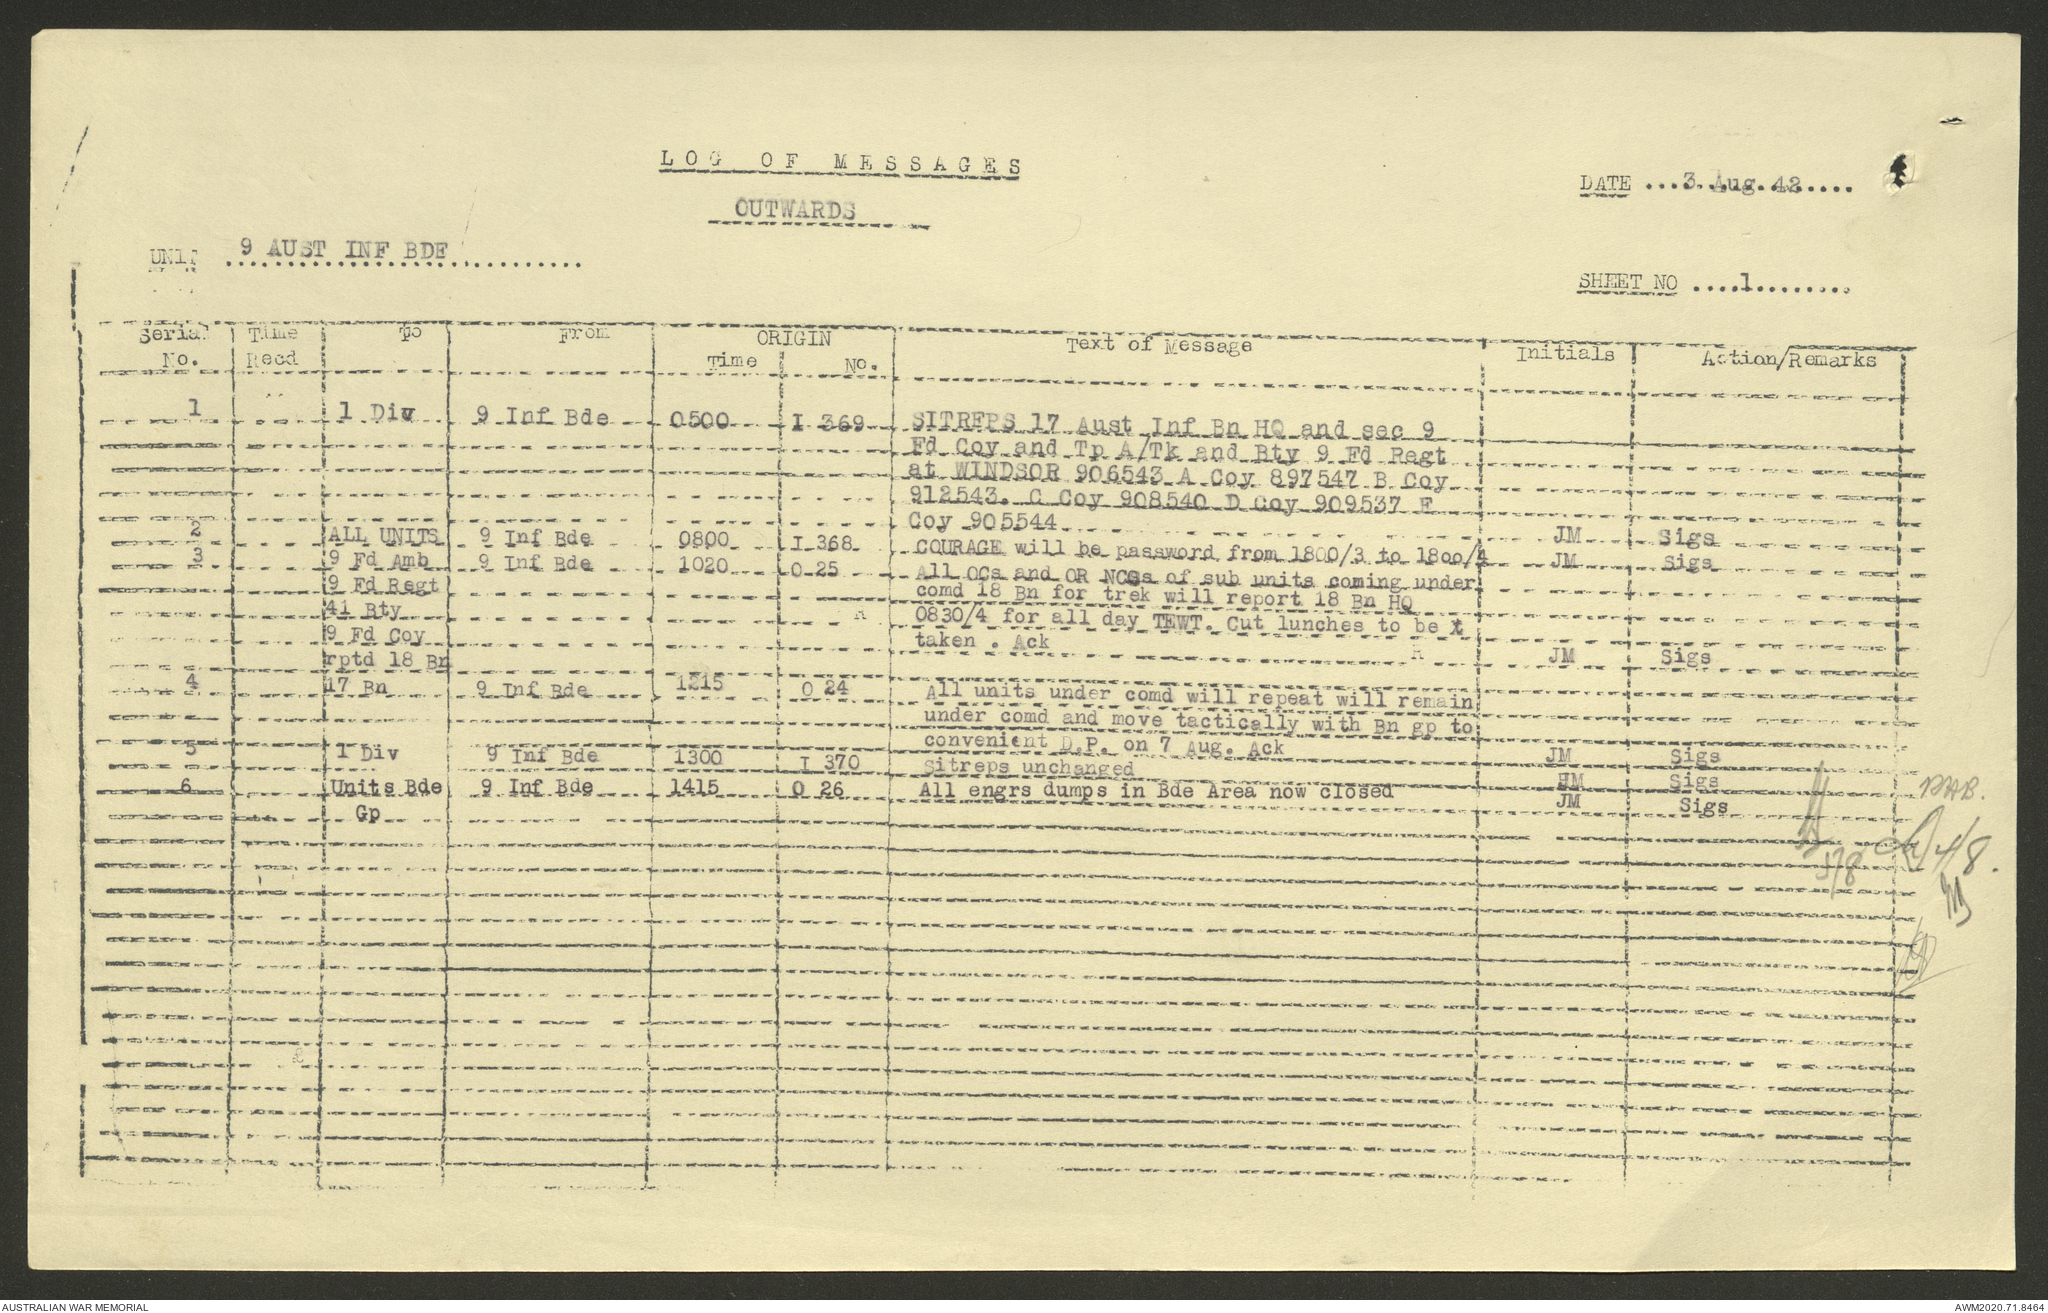 LOG OF MESSAGES
OUTWARDS
DATE ....3 Aug 42.....
UNIT 9 AUST INF BDE
SHEET NO ....1........
Serial No. Time Recd To From ORIGIN Time No. Text of Message Initials Action/Remarks
1 1 Div 9 Inf Bde 0500 I 369 SITREPS 17 Aust Inf Bn HQ and sec 9
Fd Coy and Tp A/Tk and Bty 9 Fd Regt
at WINDSOR 906543 A Coy 897547 B Coy
912543. C Coy 908540 D Coy 909537 E
Coy 905544 JM Sigs
2 ALL UNITS 9 Inf Bde 0800 I 368 COURAGE will be password from 1800/3 to 1800/4 JM Sigs
3 9 Fd Amb 9 Inf Bde 1020 O 25 All OCs and OR NCOs of sub units coming under
9 Fd Regt comd 18 Bn for trek will report 18 Bn HQ
41 Bty 0830/4 for all day TEWT. Cut lunches to be
9 Fd Coy taken . Ack
rptd 18 Bn JM Sigs
4 17 Bn 9 Inf Bde 1215 O 24 All units under comd will repeat will remain
under comd and move tactically with Bn gp to
convenient D.P. on 7 Aug. Ack JM Sigs
5 1 Div 9 Inf Bde 1300 I 370 Sitreps unchanged HM Sigs
6 Units Bde 9 Inf Bde 1415 O 26 All engrs dumps in Bde Area now closed JM Sigs
Gp
4/8.
AUSTRALIAN WAR MEMORIAL
AWM2020.71.8464